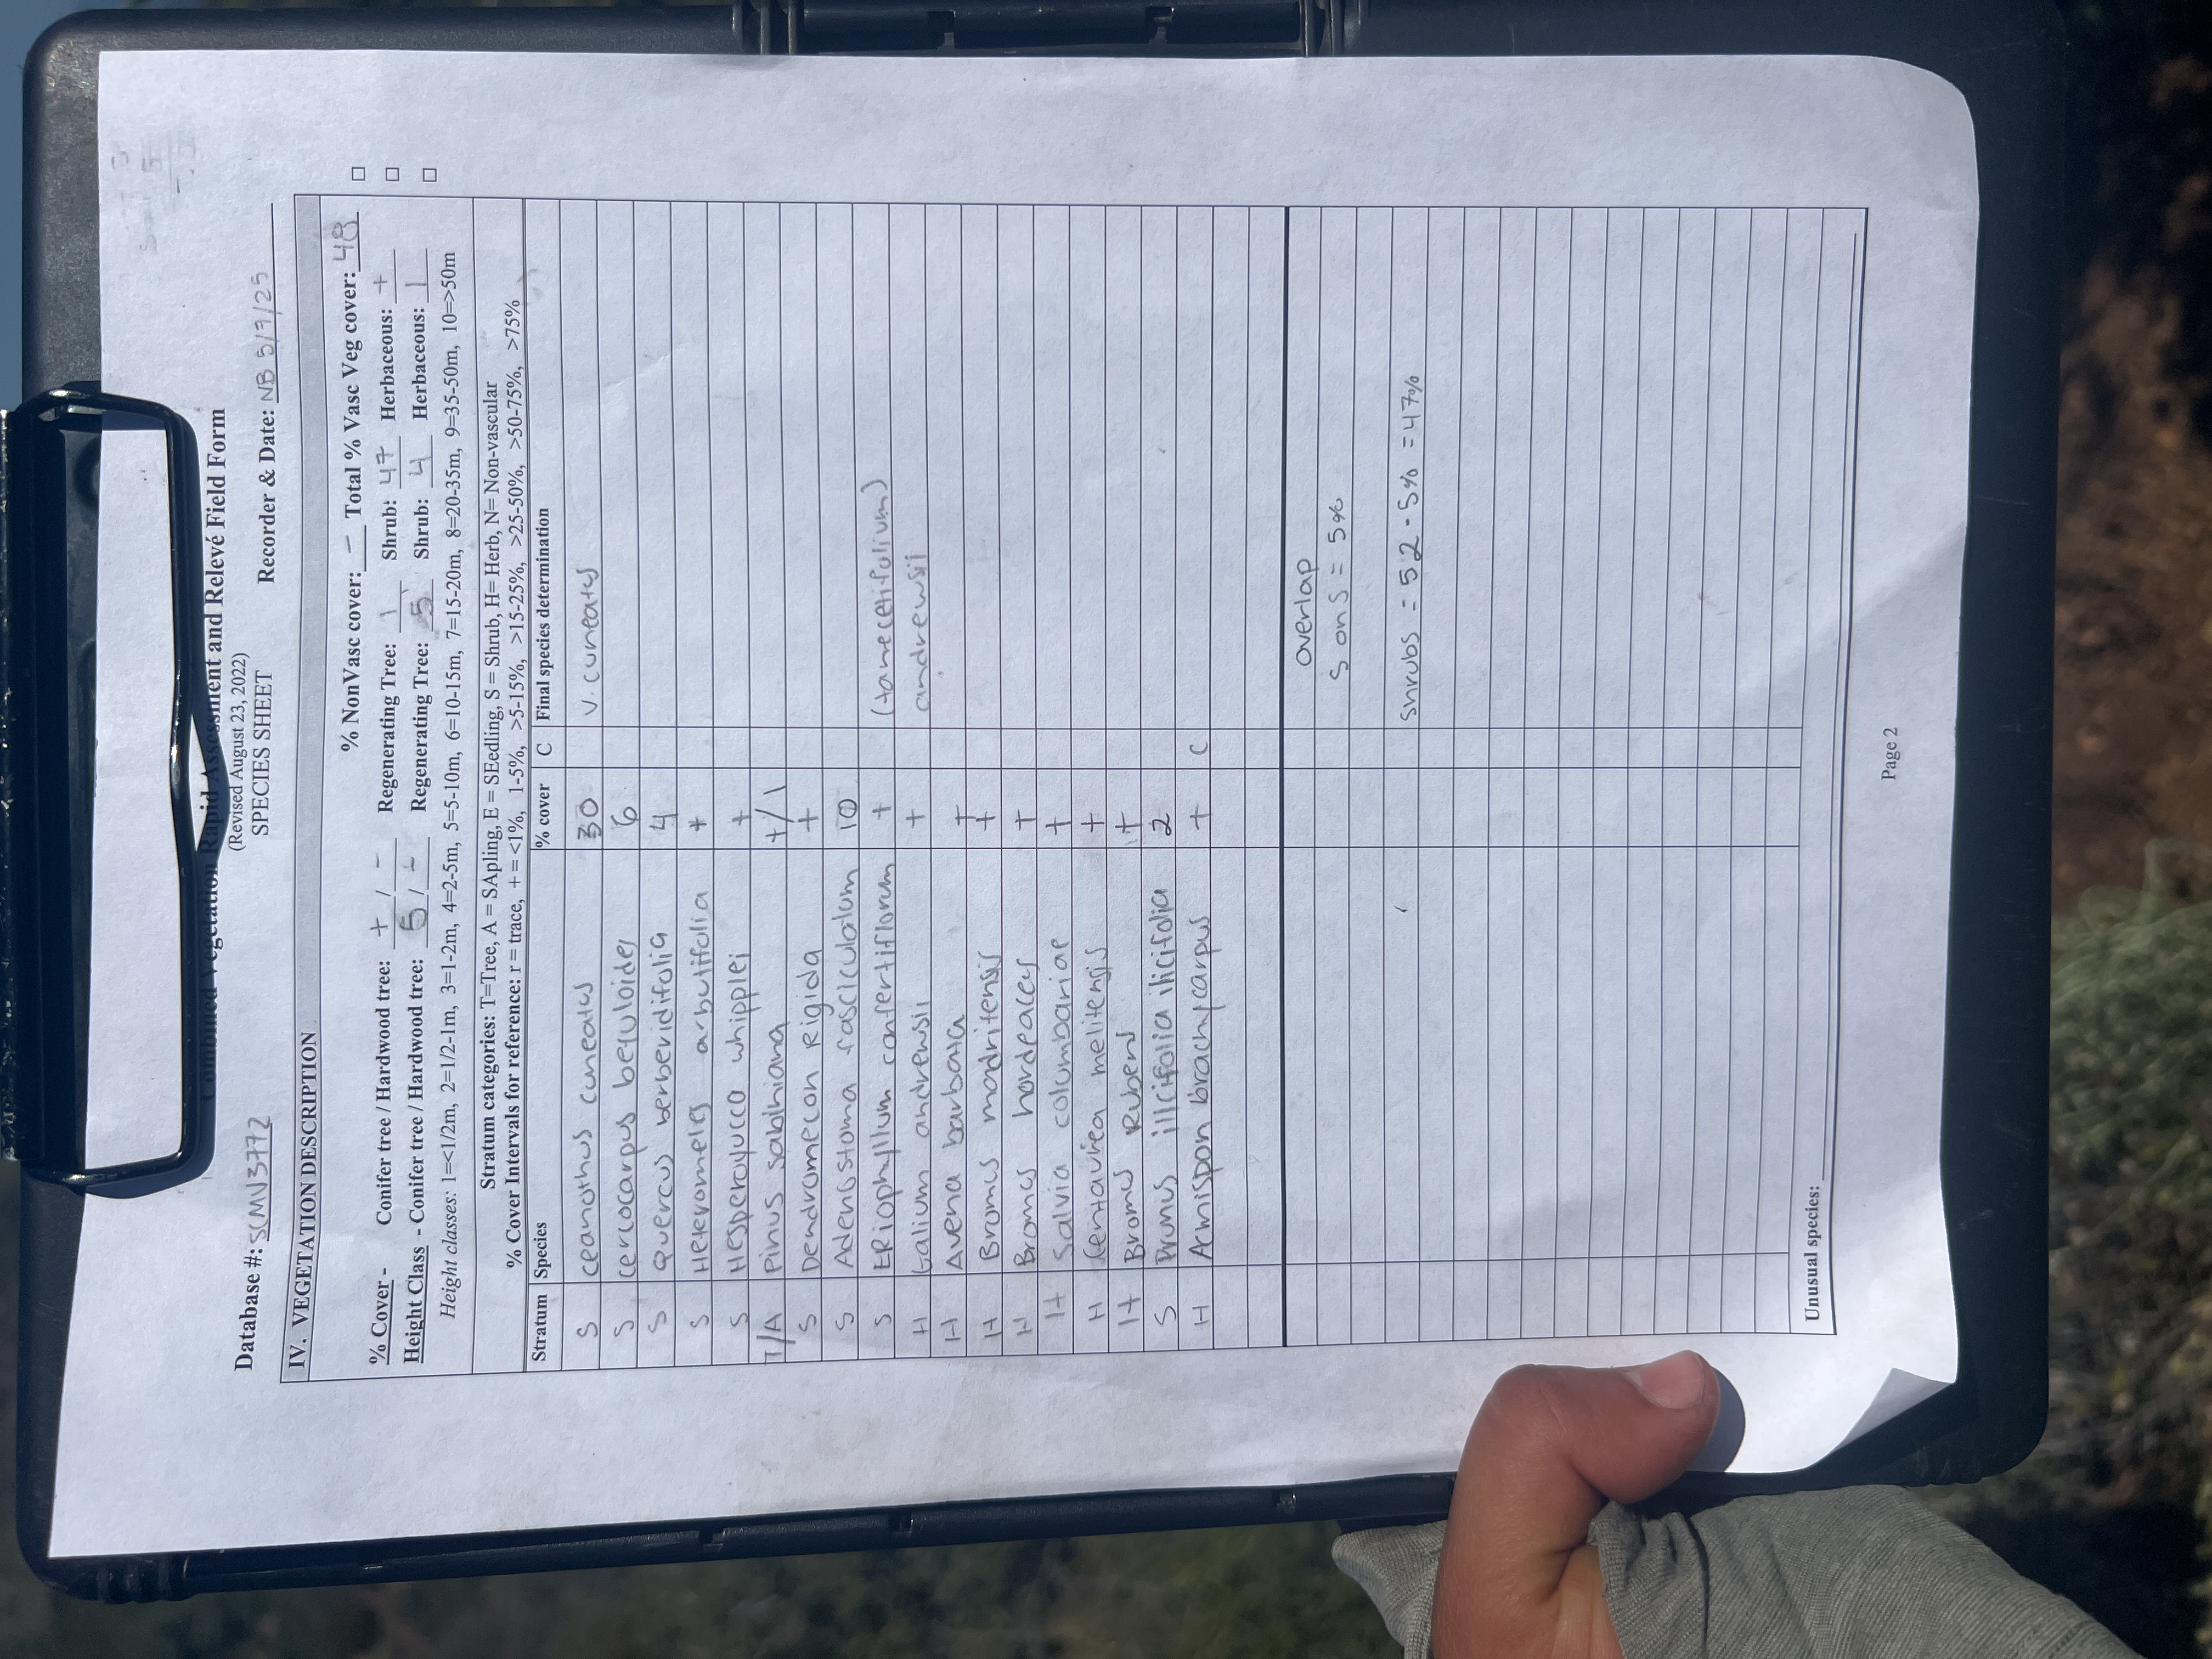 Combined Vegetation Rapid Assessment and Relevé Field Form
(Revised August 23, 2022)
SPECIES SHEET
Database #: SCMV3772 Recorder & Date: NB 5/7/25
IV. VEGETATION DESCRIPTION
% NonVasc cover: – Total % Vasc Veg cover: 48 □
% Cover - Conifer tree / Hardwood tree: + / – Regenerating Tree: 1 Shrub: 47 Herbaceous: + □
Height Class - Conifer tree / Hardwood tree: 5 / – Regenerating Tree: 5 Shrub: 4 Herbaceous: 1 □
Height classes: 1=<1/2m, 2=1/2-1m, 3=1-2m, 4=2-5m, 5=5-10m, 6=10-15m, 7=15-20m, 8=20-35m, 9=35-50m, 10=>50m
Stratum categories: T=Tree, A = SApling, E = SEedling, S = Shrub, H= Herb, N= Non-vascular
% Cover Intervals for reference: r = trace, + = <1%, 1-5%, >5-15%, >15-25%, >25-50%, >50-75%, >75%
Stratum Species % cover C Final species determination
S Ceanothus cuneatus 30 v. cuneatus
S Cercocarpus betuloides 6
S Quercus berberidifolia 4
S Heteromeles arbutifolia +
S Hesperoyucca whipplei +
T/A Pinus sabihiana +/1
S Dendromecon Rigida +
S Adenostoma fasciculatum 10
S ERiophyllum confertiflorum + (tanecetifolium)
H Galium andrewsii + andrewsii
H Avena barbata +
H Bromus madritensis +
H Bromus hordeaces +
H Salvia columbariae +
H Centaurea melitensis +
H Bromus Rubens +
S Prunus illicifolia ilicifolia 2
H Acmispon brachycarpus + C
Overlap
S on S = 5%
Shrubs = 52 - 5% = 47%
Unusual species:
Page 2